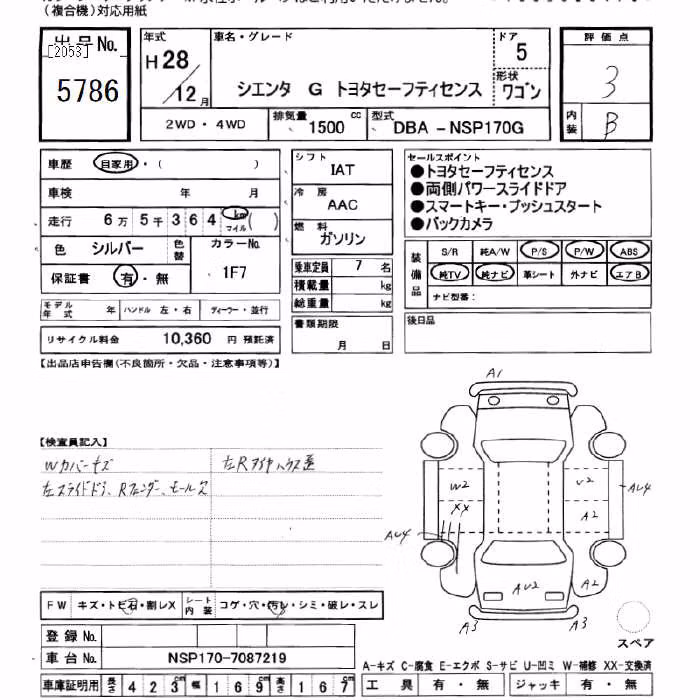 （複合機）対応用紙
出品No.
[2053]
5786
年式
H28/12月
車名・グレード
シエンタ G トヨタセーフティセンス
ドア
5
形状
ワゴン
評価点
3
内装
B
2WD・4WD
排気量
1500cc
型式
DBA－NSP170G
車歴 自家用・（ ）
車検 年 月
走行 6万5千364 km マイル（ ）
色 シルバー 色替 カラーNo. 1F7
保証書 有・無
シフト
IAT
冷房
AAC
燃料
ガソリン
乗車定員 7 名
積載量 kg
総重量 kg
書類期限
月 日
セールスポイント
●トヨタセーフティセンス
●両側パワースライドドア
●スマートキー・プッシュスタート
●バックカメラ
装備品
S/R 純A/W P/S P/W ABS
純TV 純ナビ 革シート 外ナビ エアB
ナビ型番：
モデル年式 年 ハンドル 左・右 ディーラー・並行
リサイクル料金 10,360 円 預託済
後日品
【出品店申告欄（不良箇所・欠品・注意事項等）】
【検査員記入】
Wカバーキズ
左Rタイヤハウス歪
左スライドドア、Rフェンダー、モールズ
A1
W2
U2
XX
A2
AU4
AU4
AU2
A2
A3
A3
スペア
FW キズ・トビ石・割レX シート内装 コゲ・穴・汚レ・シミ・破レ・スレ
登録No.
車台No. NSP170-7087219
A-キズ C-腐食 E-エクボ S-サビ U-凹ミ W-補修 XX-交換済
車庫証明用 長さ 423cm 幅 169cm 高さ 167cm
工具 有・無 ジャッキ 有・無